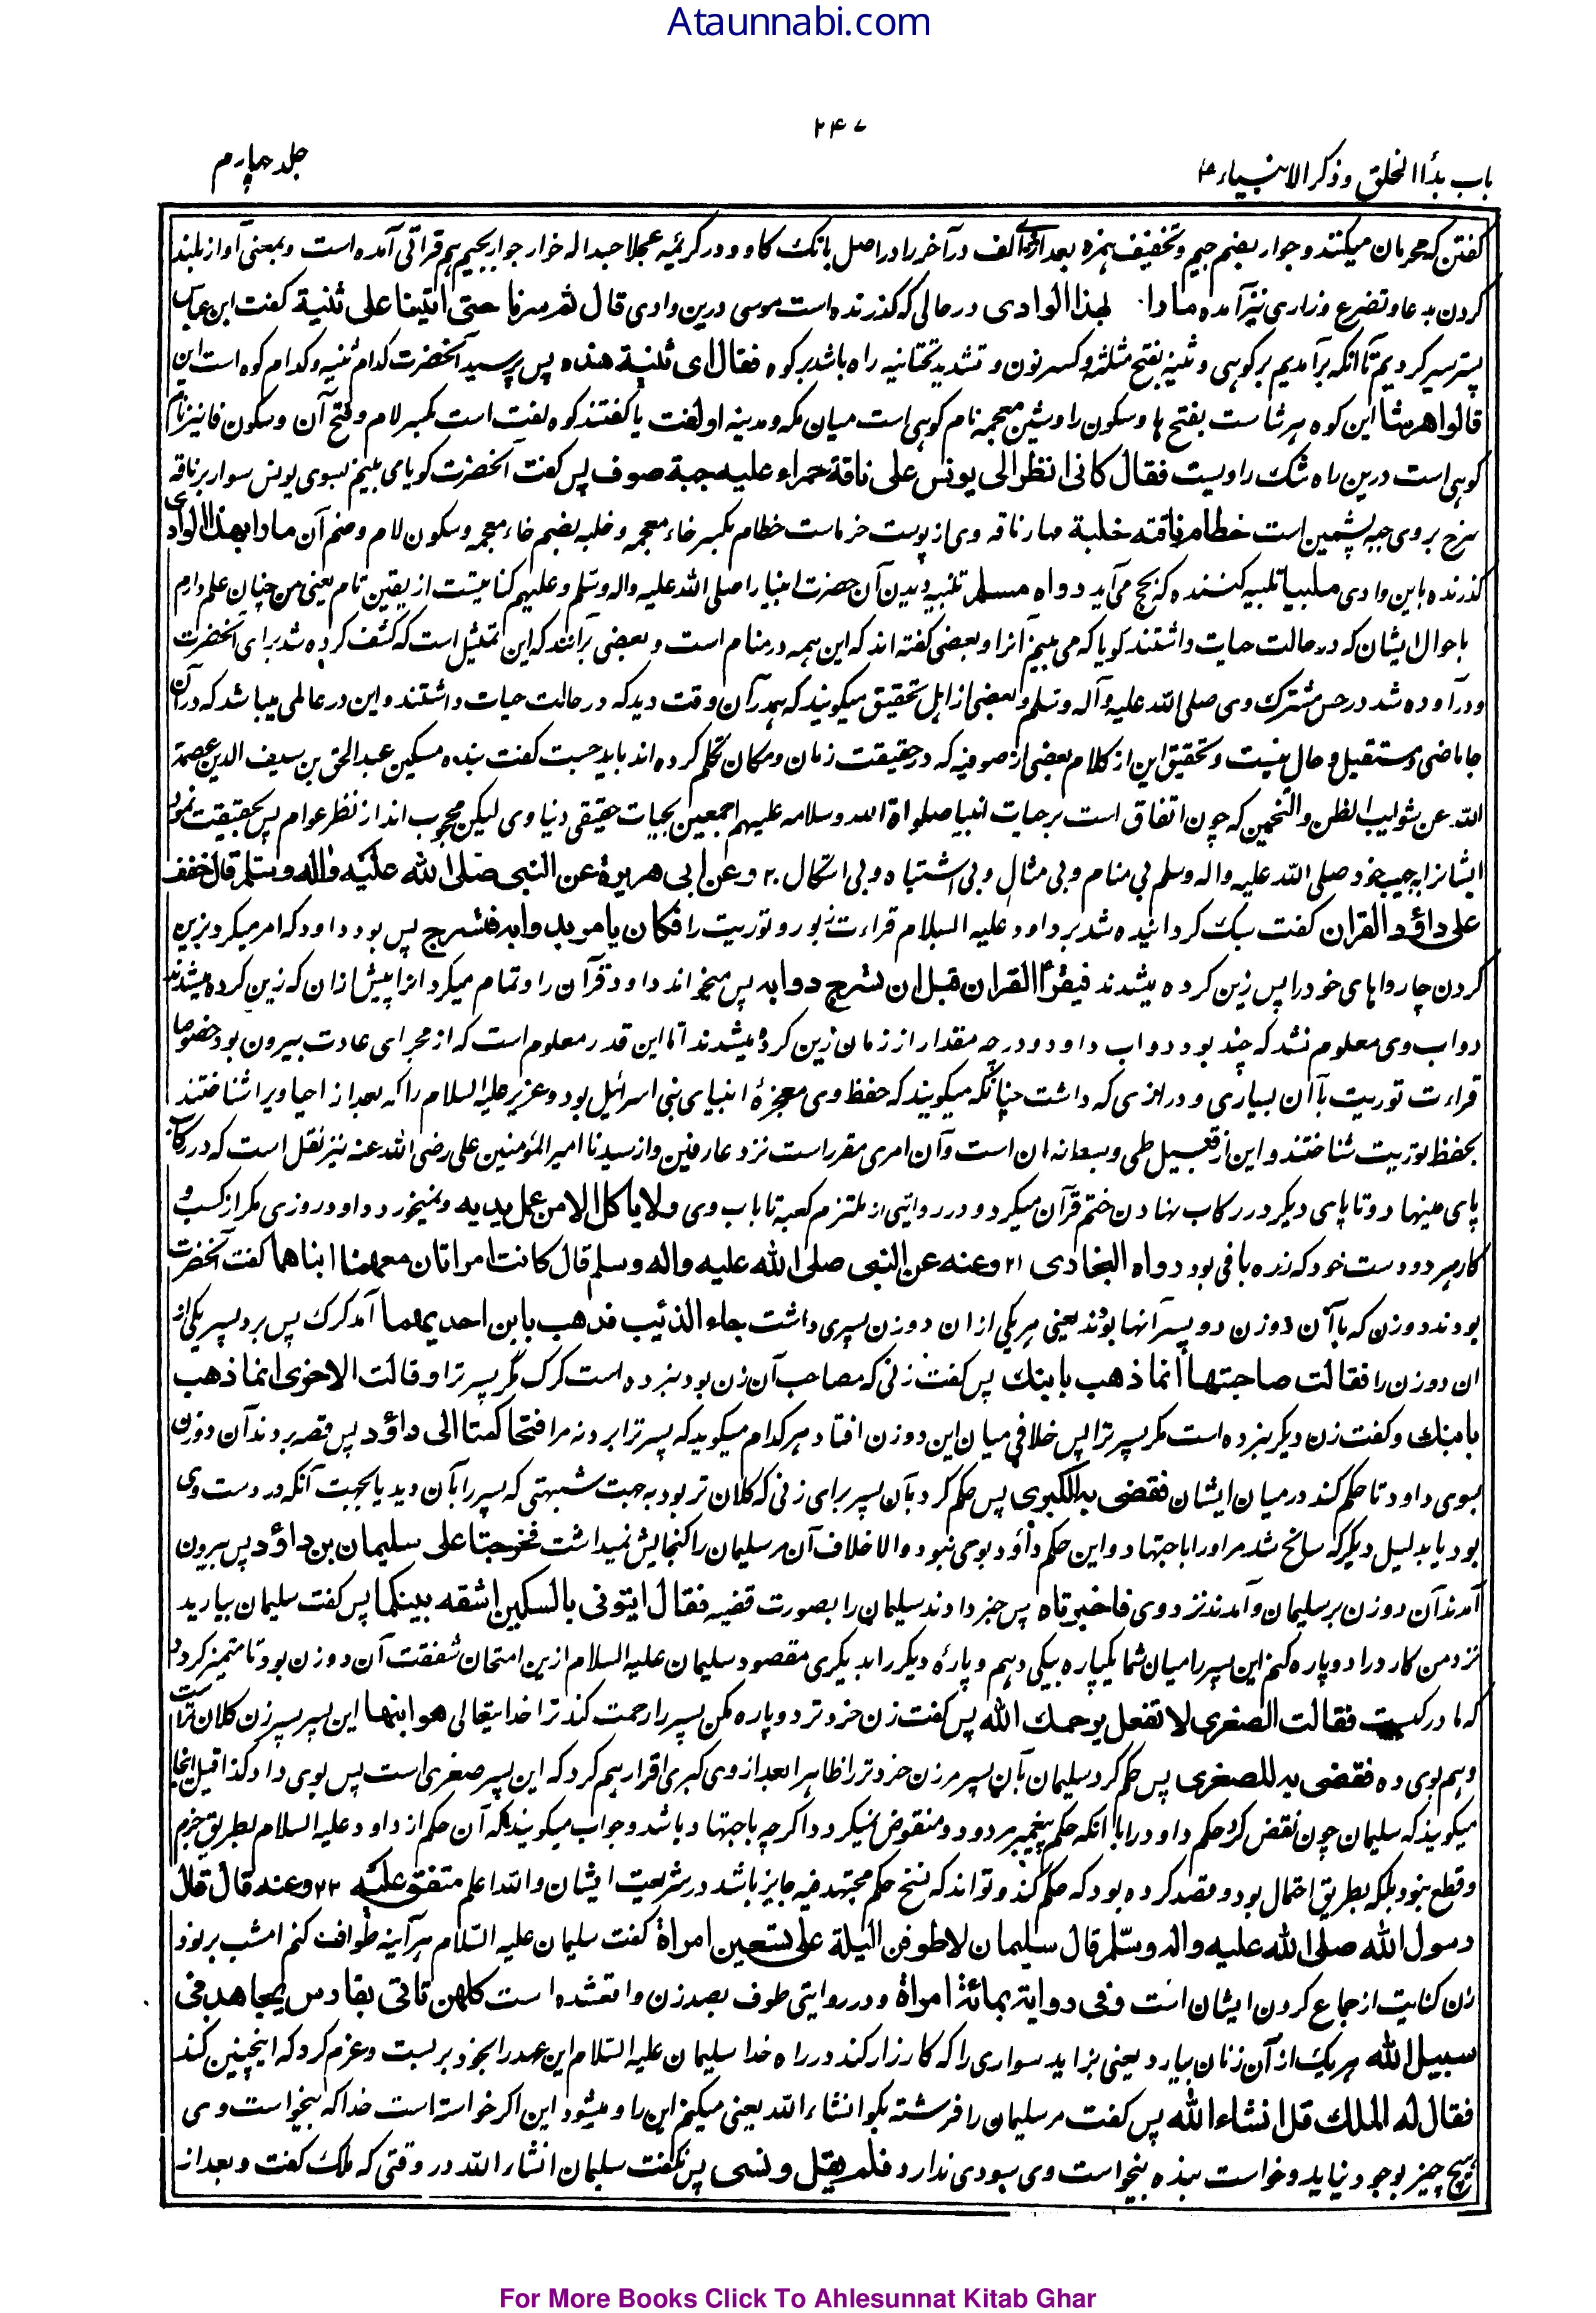 Ataunnabi.com
۲۴۷
باب بدأ الخلق وذکر الانبیاء
جلد چهارم
گفتن که محرمان میکنند وجوار بضم جیم وتخفیف همزه بعد الف درآخر را در اصل بانگ گاو ودر کریمه عجلا جسدا له خوار جوار بجیم هم قرائی آمده است وبمعنی آواز بلند
کردن بدعا وتضرع وزاری نیز آمده مارا بهذا الوادی در حالی که گذرنده است موسی درین وادی قال ثم سرنا حتی اتینا علی ثنیة گفت ابن عباس
پستر سیر کردیم تا آنکه برآمدیم بر کوهی وثنیه بفتح مثلثه وکسر نون وتشدید تحتانیه راه باشد بر کوه فقال ای ثنیة هذه پس پرسید آنحضرت کدام ثنیه وکدام کوه است این
قالوا هرشا این کوه هرشا ست بفتح ها وسکون را وشین معجمه نام کوهی است میان مکه ومدینه او لفت یا گفتند کوه لفت است بکسر لام وفتح آن وسکون فا نیز نام
کوهی است درین راه شک راویست فقال کانی انظر الی یونس علی ناقة حمراء علیه جبة صوف پس گفت آنحضرت گویا می بینم بسوی یونس سوار بر ناقه
سرخ بر وی جبه پشمین است خطام ناقته خلبة مهار ناقه وی از پوست خرماست خطام بکسر خاء معجمه وخلبه بضم خاء معجمه وسکون لام وضم آن مارا بهذا الوادی
گذرنده باین وادی ملبیا تلبیه کننده که بحج می آید رواه مسلم تنبیه دیدن آن حضرت انبیا را صلی الله علیه واله وسلم وعلیهم کنایتست از یقین تام یعنی من چنان علم دارم
باحوال ایشان که در حالت حیات داشتند گویا که می بینم آنرا وبعضی گفته اند که این همه در منام است وبعضی برآنند که این تمثیل است که کشف کرده شد برای آنحضرت
ودرآورده شد در حس مشترک وی صلی الله علیه وآله وسلم وبعضی از اهل تحقیق میگویند که همه در آن وقت دید که در حالت حیات داشتند واین در عالمی میباشد که در آن
جا ماضی ومستقبل وحال نیست وتحقیق این از کلام بعضی از صوفیه که در حقیقت زمان ومکان تکلم کرده اند باید جست گفت بنده مسکین عبد الحق بن سیف الدین عصمة
الله عن شوائب الظن والتخمین که چون اتفاق است بر حیات انبیا صلوات الله وسلامه علیهم اجمعین بحیات حقیقی دنیاوی لیکن محجوب اند از نظر عوام پس بحقیقت نمود
ایشانرا بحبیب خود صلی الله علیه واله وسلم بی منام وبی مثال وبی اشتباه وبی اشکال ۲۰ وعن ابی هریرة عن النبی صلی الله علیه واله وسلم قال خفف
علی داؤد القران گفت سبک گردانیده شد بر داود علیه السلام قراءت زبور وتوریت را فکان یامر بدوابه فتسرج پس بود داود که امر میکرد بزین
کردن چاروا های خود را پس زین کرده میشدند فیقرأ القران قبل ان تسرج دوابه پس میخواند داود قرآن را وتمام میکرد انرا پیش ازان که زین کرده میشدند
دواب وی معلوم نشد که چند بود دواب داود ودر چه مقدار از زمان زین کرده میشدند اما این قدر معلوم است که از مجرای عادت بیرون بود خصوصا
قراءت توریت با آن بسیاری ودرازی که داشت چنانکه میگویند که حفظ وی معجزهٔ انبیای بنی اسرائیل بود وعزیر علیه السلام را که بعد از احیا ویرا شناختند
بحفظ توریت شناختند واین از قبیل طی وبسط زمان است وآن امری مقرر است نزد عارفین واز سیدنا امیر المؤمنین علی رضی الله عنه نیز نقل است که در رکاب
پای مینهاد وتا پای دیگر در رکاب نهادن ختم قرآن میکرد ودر روایتی از ملتزم کعبه تا باب وی ولا یاکل الا من عمل یدیه ونمیخورد داود روزی مگر از کسب و
کار هر دو دست خود که زره بافی بود رواه البخاری ۲۱ وعنه عن النبی صلی الله علیه واله وسلم قال کانت امراتان معهما ابناهما گفت آنحضرت
بودند دو زن که با آن دو زن دو پسر آنها بودند یعنی هر یکی از ان دو زن پسری داشت جاء الذئب فذهب بابن احدیهما آمد گرگ پس برد پسر یکی از
ان دو زن را فقالت صاحبتها انما ذهب بابنك پس گفت زنی که مصاحب آن زن بود نبرده است گرگ مگر پسر ترا وقالت الاخری انما ذهب
بابنك وگفت زن دیگر نبرده است مگر پسر ترا پس خلافی میان این دو زن افتاد هر کدام میگوید که پسر ترا برد نه مرا فتحاکمتا الی داؤد پس قصه بردند آن دو زن
بسوی داود تا حکم کند درمیان ایشان فقضی به للکبری پس حکم کرد بآن پسر برای زنی که کلان تر بود به جهت شبهتی که پسر را بآن دید یا بجهت آنکه در دست وی
بود یا بدلیل دیگر که سانح شد مر او را باجتهاد واین حکم داؤد بوحی نبود والا خلاف آن مر سلیمان را گنجایش نمیداشت فخرجتا علی سلیمان بن داؤد پس بیرون
آمدند آن دو زن بر سلیمان وآمدند نزد وی فاخبرتاه پس خبر دادند سلیمان را بصورت قضیه فقال ایتونی بالسکین اشقه بینکما پس گفت سلیمان بیارید
نزد من کارد را دوپاره کنم این پسر را میان شما یکپاره بیکی دهم وپارهٔ دیگر را بدیگری مقصود سلیمان علیه السلام ازین امتحان شفقت آن دو زن بود تا متمیز گردد
که مادر کیست فقالت الصغری لا تفعل یرحمك الله پس گفت زن خردتر دوپاره مکن پسر را رحمت کند ترا خدایتعالی هو ابنها این پسر پسر زن کلان تراست
وهم بوی ده فقضی به للصغری پس حکم کرد سلیمان بآن پسر مر زن خردتر را ظاهرا بعد از وی کبری اقرار هم کرد که این پسر صغری است پس بوی داد کذا قیل اینجا
میگویند که سلیمان چون نقض کرد حکم داود را با آنکه حکم پیغمبر مردود ومنقوض نمیگردد اگرچه باجتهاد باشد وجواب میگویند که آن حکم از داود علیه السلام بطریق جزم
وقطع نبود بلکه بطریق احتمال بود وقصد کرده بود که حکم کند وتواند که نسخ حکم مجتهد فیه جایز باشد در شریعت ایشان والله اعلم متفق علیه ۲۲ وعنه قال قال
رسول الله صلی الله علیه واله وسلم قال سلیمان لاطوفن اللیلة علی تسعین امراة گفت سلیمان علیه السلام هرآینه طوافت کنم امشب بر نود
زن کنایت از جماع کردن ایشان است وفی روایة بمائة امراة ودر روایتی طوف بصد زن واقعشده است کلهن تاتی بفارس یجاهد فی
سبیل الله هر یک از آن زنان بیارد یعنی بزاید سواری را که کارزار کند در راه خدا سلیمان علیه السلام این عهد را بخود بر بست وعزم کرد که اینچنین کند
فقال له الملك قل انشاء الله پس گفت مر سلیمان را فرشته بگو انشاء الله یعنی میکنم این را ومیشود این اگر خواسته است خدا که بیخواست وی
هیچ چیز بوجود نیاید وخواست بنده بیخواست وی سودی ندارد فلم یقل ونسی پس نگفت سلیمان انشاء الله در وقتی که ملک گفت وبعد از
For More Books Click To Ahlesunnat Kitab Ghar